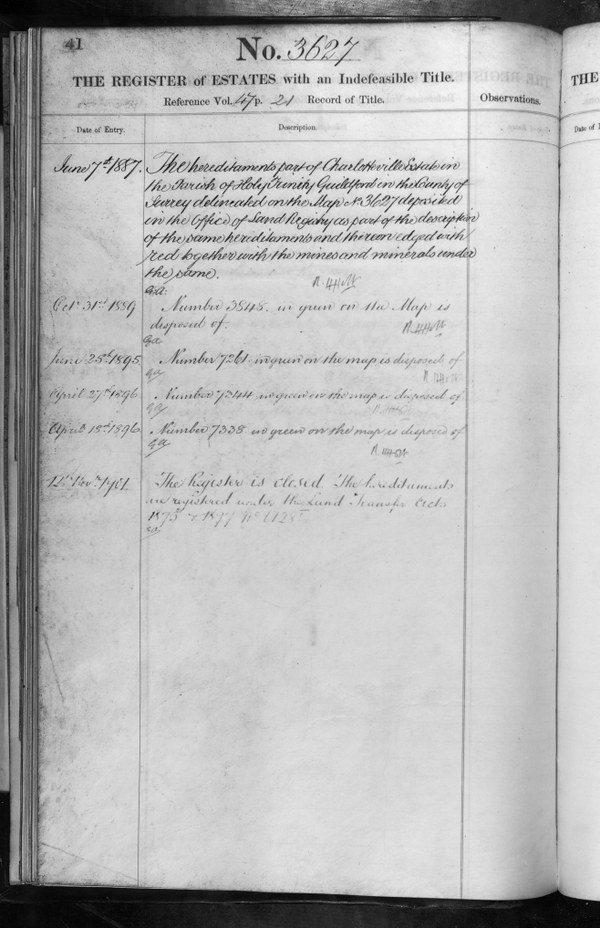 41
No. 3627
THE REGISTER of ESTATES with an Indefeasible Title.
Reference Vol. 47 p. 21 Record of Title.
Observations.
Date of Entry.
Description.
June 7th 1887.
The hereditaments part of Charlotteville Estate in
the Parish of Holy Trinity Guildford in the County of
Surrey delineated on the Map No. 3627 deposited
in the Office of Land Registry as part of the description
of the same hereditaments and thereon edged with
red together with the mines and minerals under
the same.
Octr 31st 1889
Number 3848 in green on the Map is
disposed of.
June 25th 1895.
Number 7261 in green on the map is disposed of
April 27th 1896
Number 7344 in green on the map is disposed of
April 18th 1896
Number 7338 in green on the map is disposed of
12th Novr 1901
The Register is closed The hereditaments
are registered under the Land Transfer Acts
1875 & 1897 No
THE
Date of